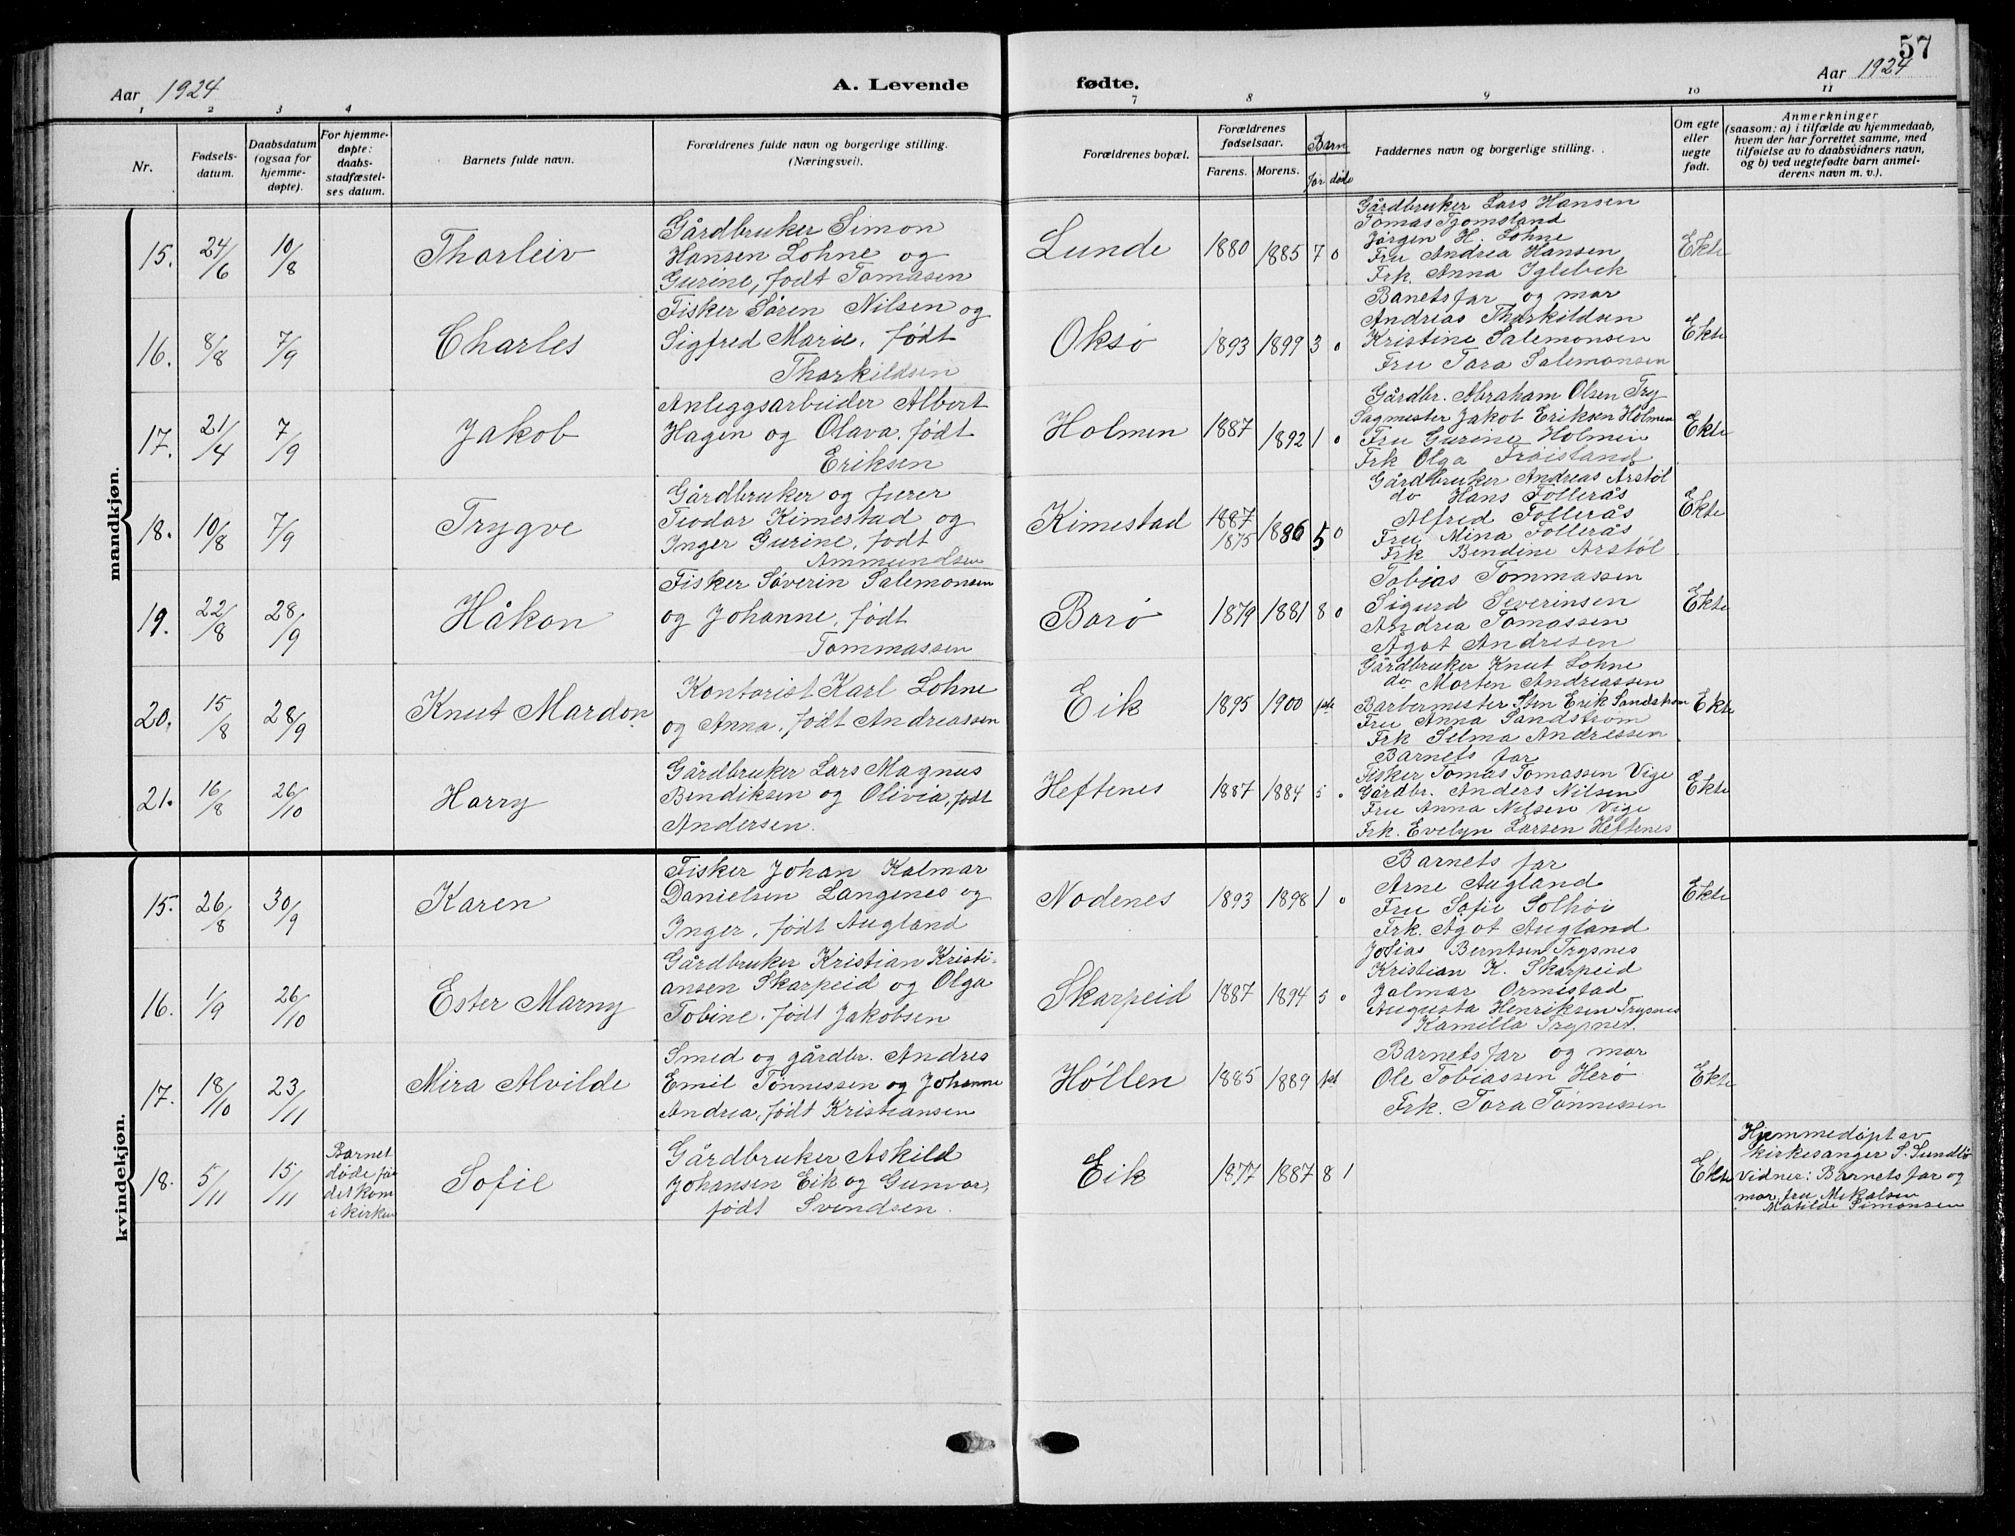 57
Aar 1924
A. Levende
fødte.
Aar 1924
1 2 3 4 7 8 9 10 11
Nr.
Fødsels-
datum.
Daabsdatum
(ogsaa for
hjemme-
døpte).
For hjemme-
døpte:
daabs-
stadfæstel-
ses datum.
Barnets fulde navn.
Forældrenes fulde navn og borgerlige stilling.
(Næringsvei).
Forældrenes bopæl.
Forældrenes
fødselsaar.
Farens. Morens.
Barn
før døde
Faddernes navn og borgerlige stilling.
Om egte
eller
uegte
født.
Anmerkninger
(saasom: a) i tilfælde av hjemmedaab,
hvem der har forrettet samme, med
tilføielse av to daabsvidners navn,
og b) ved uegtefødte barn anmel-
derens navn m. v.).
mandkjøn.
15. 24/6 10/8
Thorleiv
Gårdbruker Simon
Hansen Lohne og
Gurine, født Tomasen
Lunde
1880 1885 7 0
Gårdbruker Lars Hansen
Tomas Tjomsland
Jørgen H. Lohne
Fru Andrea Hansen
Frk. Anna Iglebek
Ekte
16. 8/8 7/9
Charles
Fisker Sören Nilsen og
Sigfred Marie, født
Thorkildsen
Oksø
1893 1899 3 0
Banets far og mor
Andreas Thorkildsen
Kristine Salemonsen
Fru Tora Salemonsen
Ekte
17. 21/4 7/9
Jakob
Anleggsarbeider Albert
Hagen og Olava, født
Eriksen
Holmen
1887 1892 1 0
Gårdbr. Abraham Olsen Try
Sagmester Jakob Eriksen Holmen
Fru Gurine Holmen
Frk Olga Frøisland
Ekte
18. 10/8 7/9
Trygve
Gårdbruker og furer
Teodor Kimestad og
Inger Gurine, født
Ammundsen
Kimestad
1887
1875 1886 5 0
Gårdbruker Andreas Årstøl
do Hans Follerås
Alfred Follerås
Fru Mina Follerås
Frk Bendene Årstøl
Ekte
19. 22/8 28/9
Håkon
Fisker Söverin Salemonsen
og Johanne, født
Tommassen
Borø
1879 1881 8 0
Tobias Tommassen
Sigurd Severinsen
Andrea Tomassen
Ågot Andresen
Ekte
20. 15/8 28/9
Knut Mardon
Kontorist Karl Lohne
og Anna, født Andreassen
Eik
1895 1900 1ste
Gårdbruker Knut Lohne
do Morten Andreassen
Barbermester Sten Erik Sandstrøm
Fru Anna Sandstrøm
Frk Selma Andressen
Ekte
21. 16/8 26/10
Harry
Gårdbruker Lars Magnus
Bendiksen og Olivia, født
Andersen.
Heftenes
1887 1884 5 0
Barnets far
Fisker Tomas Tomassen Vige
Gårdbr. Anders Nilsen
Fru Anna Nilsen Vige
Frk. Evelyn Larsen Heftenes
Ekte
kvindekjøn.
15. 26/8 30/9
Karen
Fisker Johan Kalmar
Danielsen Langenes og
Inger, født Augland
Nodenes
1893 1898 1 0
Barnets far
Arne Augland
Fru Sofie Solhøi
Frk. Ågot Augland
Ekte
16. 1/9 26/10
Ester Marny
Gårdbruker Kristian Kristi-
ansen Skarpeid og Olga
Tobine, født Jakobsen
Skarpeid
1887 1894 5 0
Josias Berntsen Trysnes
Kristian K. Skarpeid
Jalmar Ormestad
Augusta Henriksen Trysnes
Kamilla Trysnes.
17. 18/10 23/11
Mira Alvilde
Smed og gårdbr. Andres
Emil Tønnessen og Johanne
Andrea, født Kristiansen
Høllen
1885 1889 1st
Barnets far og mor
Ole Tobiassen Herø
Frk. Tora Tønnessen
Ekte
18. 5/11 15/11
Barnet
døde før
det kom
i kirken
Sofie
Gårdbruker Askild
Johansen Eik og Gunvor,
født Svendsen.
Eik
1877 1887 8 1
Ekte
Hjemmedøpt av
kirkesanger S. Sundbø
Vidner: Barnets far og
mor, fru Mikalsen
Matilde Simonsen